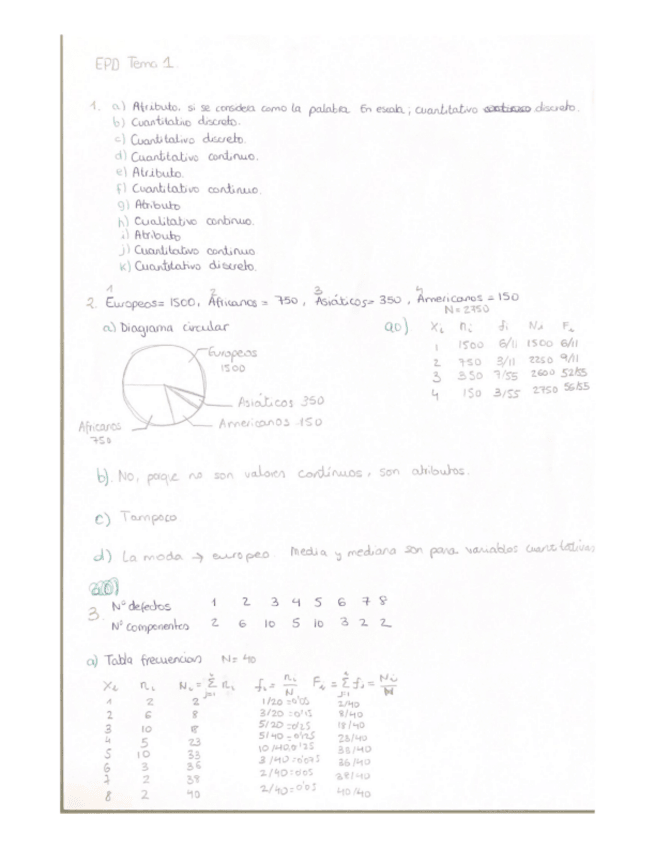 EPD Tema 1.
1. a) Atributo, si se considera como la palabra. En escala; cuantitativo continuo discreto.
b) Cuantitativo discreto.
c) Cuantitativo discreto.
d) Cuantitativo continuo.
e) Atributo.
f) Cuantitativo continuo.
g) Atributo
h) Cualitativo continuo.
i) Atributo
j) Cuantitativo continuo
k) Cuantitativo discreto.
1 2 3 4
2. Europeos= 1500, Africanos = 750, Asiáticos= 350, Americanos = 150
N= 2750
a) Diagrama circular
Europeos
1500
Asiáticos 350
Americanos 150
Africanos
750
a0) Xi ni fi Ni Fi
1 1500 6/11 1500 6/11
2 750 3/11 2250 9/11
3 350 7/55 2600 52/55
4 150 3/55 2750 55/55
b). No, porque no son valores continuos, son atributos.
c) Tampoco
d) La moda → europeo. Media y mediana son para variables cuantitativas
3. Nº defectos 1 2 3 4 5 6 7 8
Nº componentes 2 6 10 5 10 3 2 2
a) Tabla frecuencias N= 40
Xi ni Ni = Σ ni fi = ni/N Fi = Σ fi = Ni/N
1 2 2 1/20=0'05 2/40
2 6 8 3/20=0'15 8/40
3 10 18 5/20=0'25 18/40
4 5 23 5/40=0'125 23/40
5 10 33 10/40=0'25 33/40
6 3 36 3/40=0'075 36/40
7 2 38 2/40=0'05 38/40
8 2 40 2/40=0'05 40/40